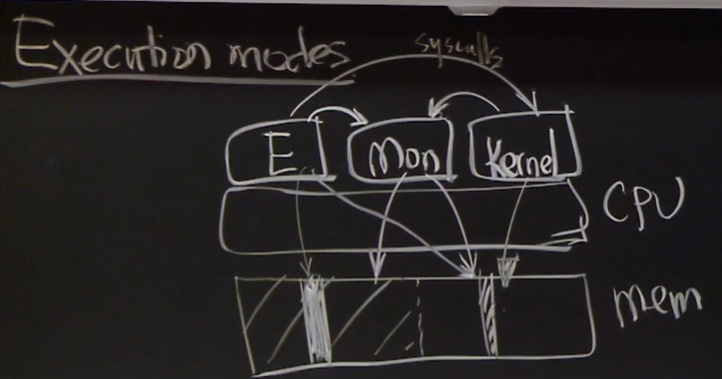 Execution modes
syscalls
E Mon Kernel
CPU
mem